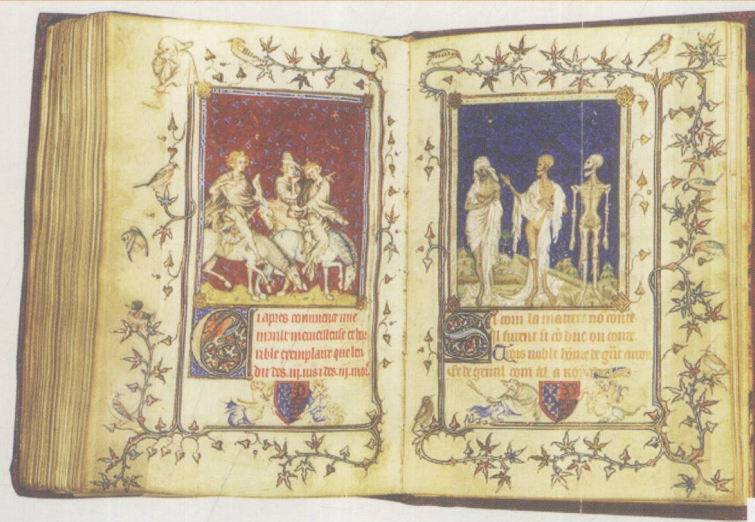 Ci apres conmence une
moult merveilleuse et hor
rible exemplaire que len
dit des .iij. vis et des .iij. mors
Si com la matiere nō conte
Il furent si cō duc ou conte
Trois noble hōme de grāt arroy
Et de gentil com fil a roy